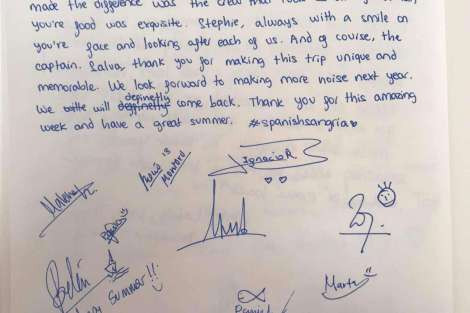 made the difference was the crew that
you're good was exquisite. Stephie, always with a smile on
you're face and looking after each of us. And of course, the
captain. Salva, thank you for making this trip unique and
memorable. We look forward to making more noise next year.
definetly
We will come back. Thank you for this amazing
week and have a great summer. #spanishsangria
Ignacio R.
Belén
Marta
summer!!
Daniel